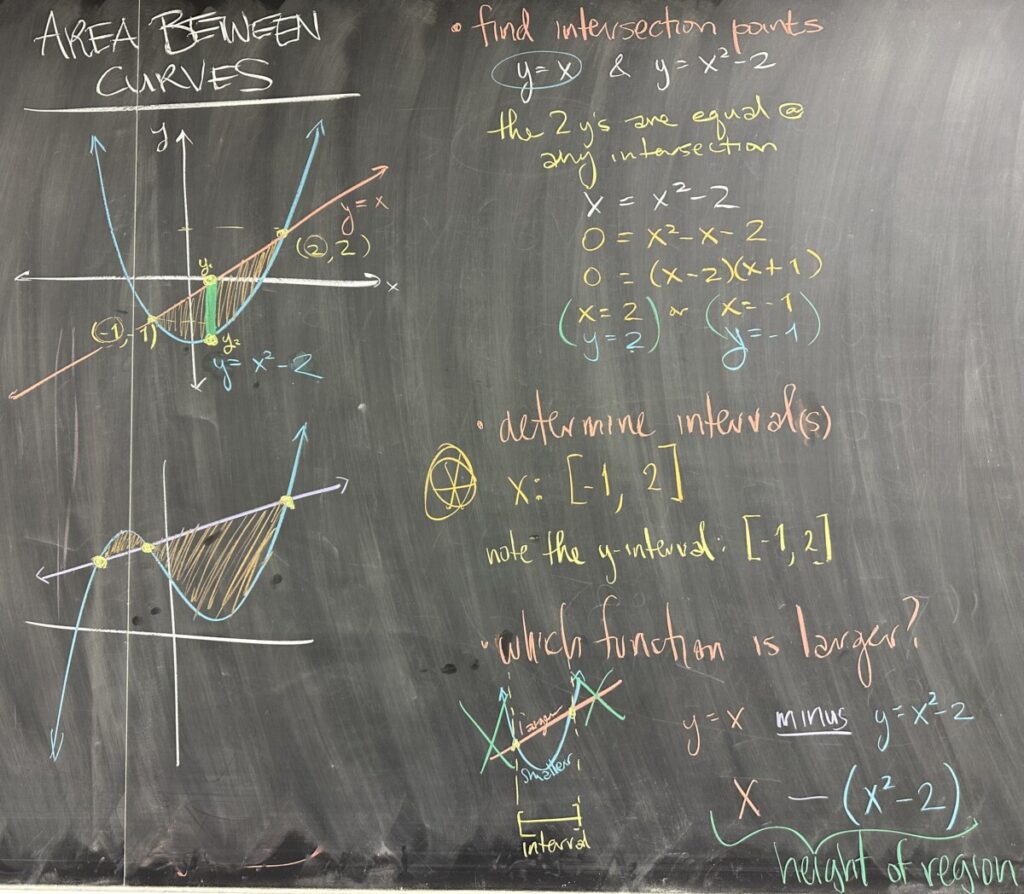 AREA BETWEEN
CURVES
y
y = x
(2, 2)
x
y₁
(-1, -1)
y₂
y = x² - 2
• find intersection points
y = x & y = x² - 2
the 2 y's are equal @
any intersection
x = x² - 2
0 = x² - x - 2
0 = (x-2)(x+1)
(x = 2 or (x = -1
y = 2) y = -1)
• determine interval(s)
x: [-1, 2]
note the y-interval: [-1, 2]
• which function is larger?
larger
smaller
interval
y = x minus y = x² - 2
x - (x² - 2)
height of region